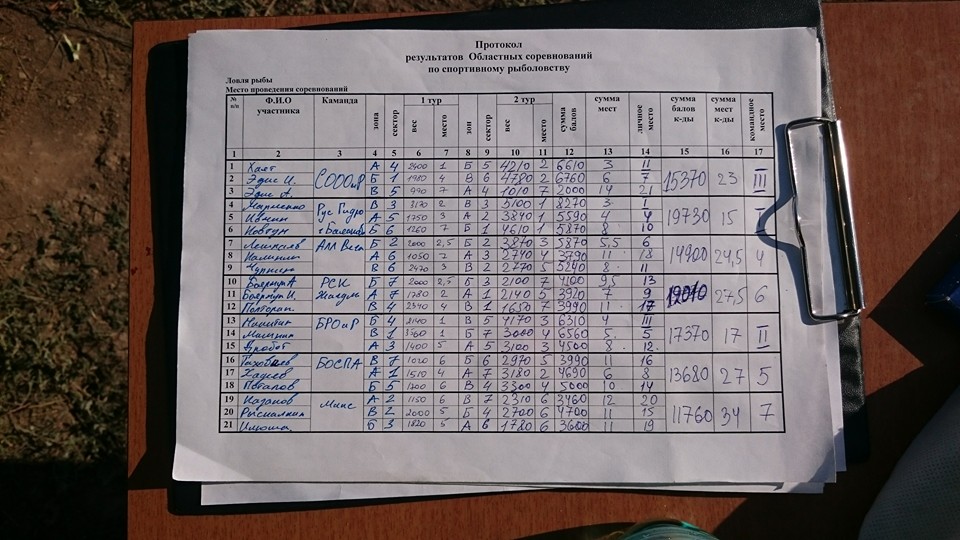 Протокол
результатов Областных соревнований
по спортивному рыболовству
Ловля рыбы
Место проведения соревнований
№ п/п Ф.И.О участника Каманда зона сектор 1 тур вес место зон сектор 2 тур вес место сумма балов сумма мест личное место сумма балов к-ды сумма мест к-ды командное место
1 2 3 4 5 6 7 8 9 10 11 12 13 14 15 16 17
1 Хаят СОООиР А 4 2400 1 Б 5 4210 2 6610 3 II 15370 23 III
2 Эдис И. Б 1 1980 4 В 6 4780 2 6760 6 7
3 Эдис А. В 5 990 7 А 4 1010 7 2000 14 21
4 Рус Гидро В 3 3170 2 В 3 5100 1 8270 3 I 19730 15 I
5 А 5 1750 3 А 2 3840 1 5590 4 4
6 г. Балаково Б 6 1260 7 Б 1 4610 1 5870 8 10
7 Б 2 2000 2,5 Б 2 3870 3 5870 5,5 6 14900 24,5 4
8 А 6 1050 7 А 3 2740 4 3790 11 18
9 В 6 2470 3 В 2 2770 5 5240 8 11
10 РСК Б 7 2000 2,5 Б 3 2100 7 4100 9,5 13 27,5 6
11 А 7 1780 2 А 1 2140 5 3920 7 9
12 В 4 2340 4 В 1 1650 7 3990 11 17
13 Никитин БРОиР Б 4 2140 1 В 5 4170 3 6310 4 III 17370 17 II
14 В 1 3560 1 Б 7 3000 4 6560 5 5
15 А 3 1400 5 А 5 3100 3 4500 8 12
16 БОСПА В 7 1020 6 Б 6 2970 5 3990 11 16 13680 27 5
17 А 1 1510 4 А 7 3180 2 4690 6 8
18 Потапов Б 5 1700 6 В 4 3300 4 5000 10 14
19 Казаков Микс А 2 1150 6 В 7 2310 6 3460 12 20 11760 34 7
20 В 2 2000 5 Б 4 2700 6 4700 11 15
21 Б 3 1820 5 А 6 1780 6 3600 11 19